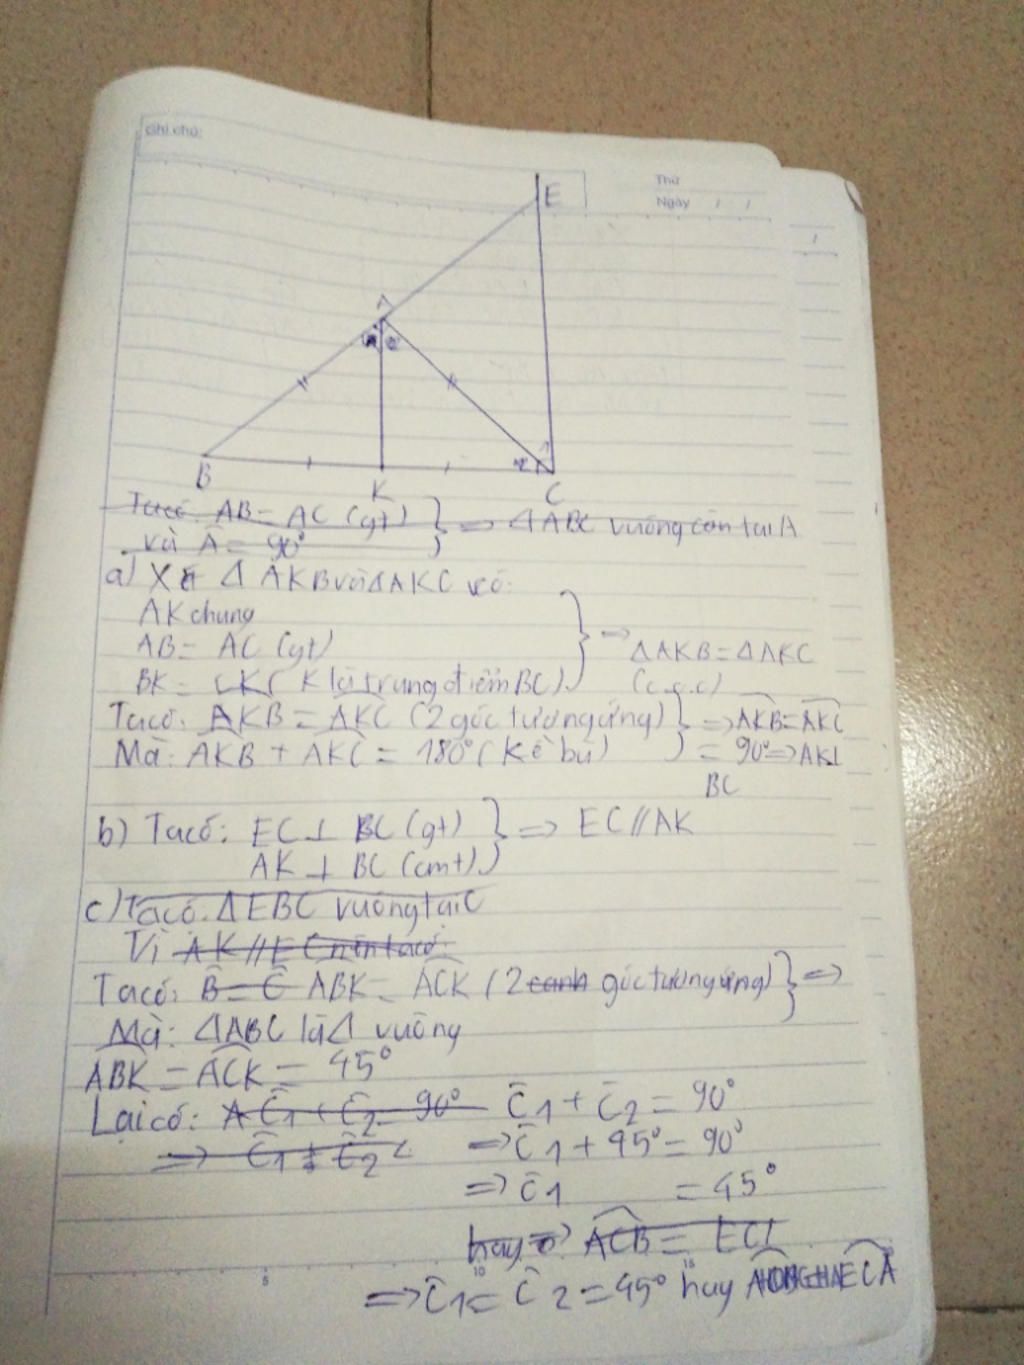 Ghi chú:
Thứ
Ngày / /
E
A
B
K
C
Ta có AB = AC (gt) } => ΔABC vuông cân tại A
và Â = 90°
a) Xét Δ AKB và ΔAKC có:
AK chung
AB = AC (gt)
BK = CK (K là trung điểm BC) } => ΔAKB = ΔAKC
(c.c.c)
Ta có: AKB = AKC (2 góc tương ứng) } => AKB = AKC
Mà: AKB + AKC = 180° (kề bù) = 90° => AK⊥
BC
b) Ta có: EC ⊥ BC (gt) } => EC // AK
AK ⊥ BC (cmt)
c) Ta có: ΔEBC vuông tại C
Vì AK // EC nên ta có:
Ta có: B̂ = Ĉ ABK = ACK (2 cạnh góc tương ứng) } =>
Mà: ΔABC là Δ vuông
ABK = ACK = 45°
Lại có: A Ĉ1 + Ĉ2 = 90° Ĉ1 + Ĉ2 = 90°
=> Ĉ1 + Ĉ2 => Ĉ1 + 45° = 90°
=> Ĉ1 = 45°
hay => ACB = ECA
5 10 15
=> Ĉ1 = Ĉ2 = 45° hay ECA